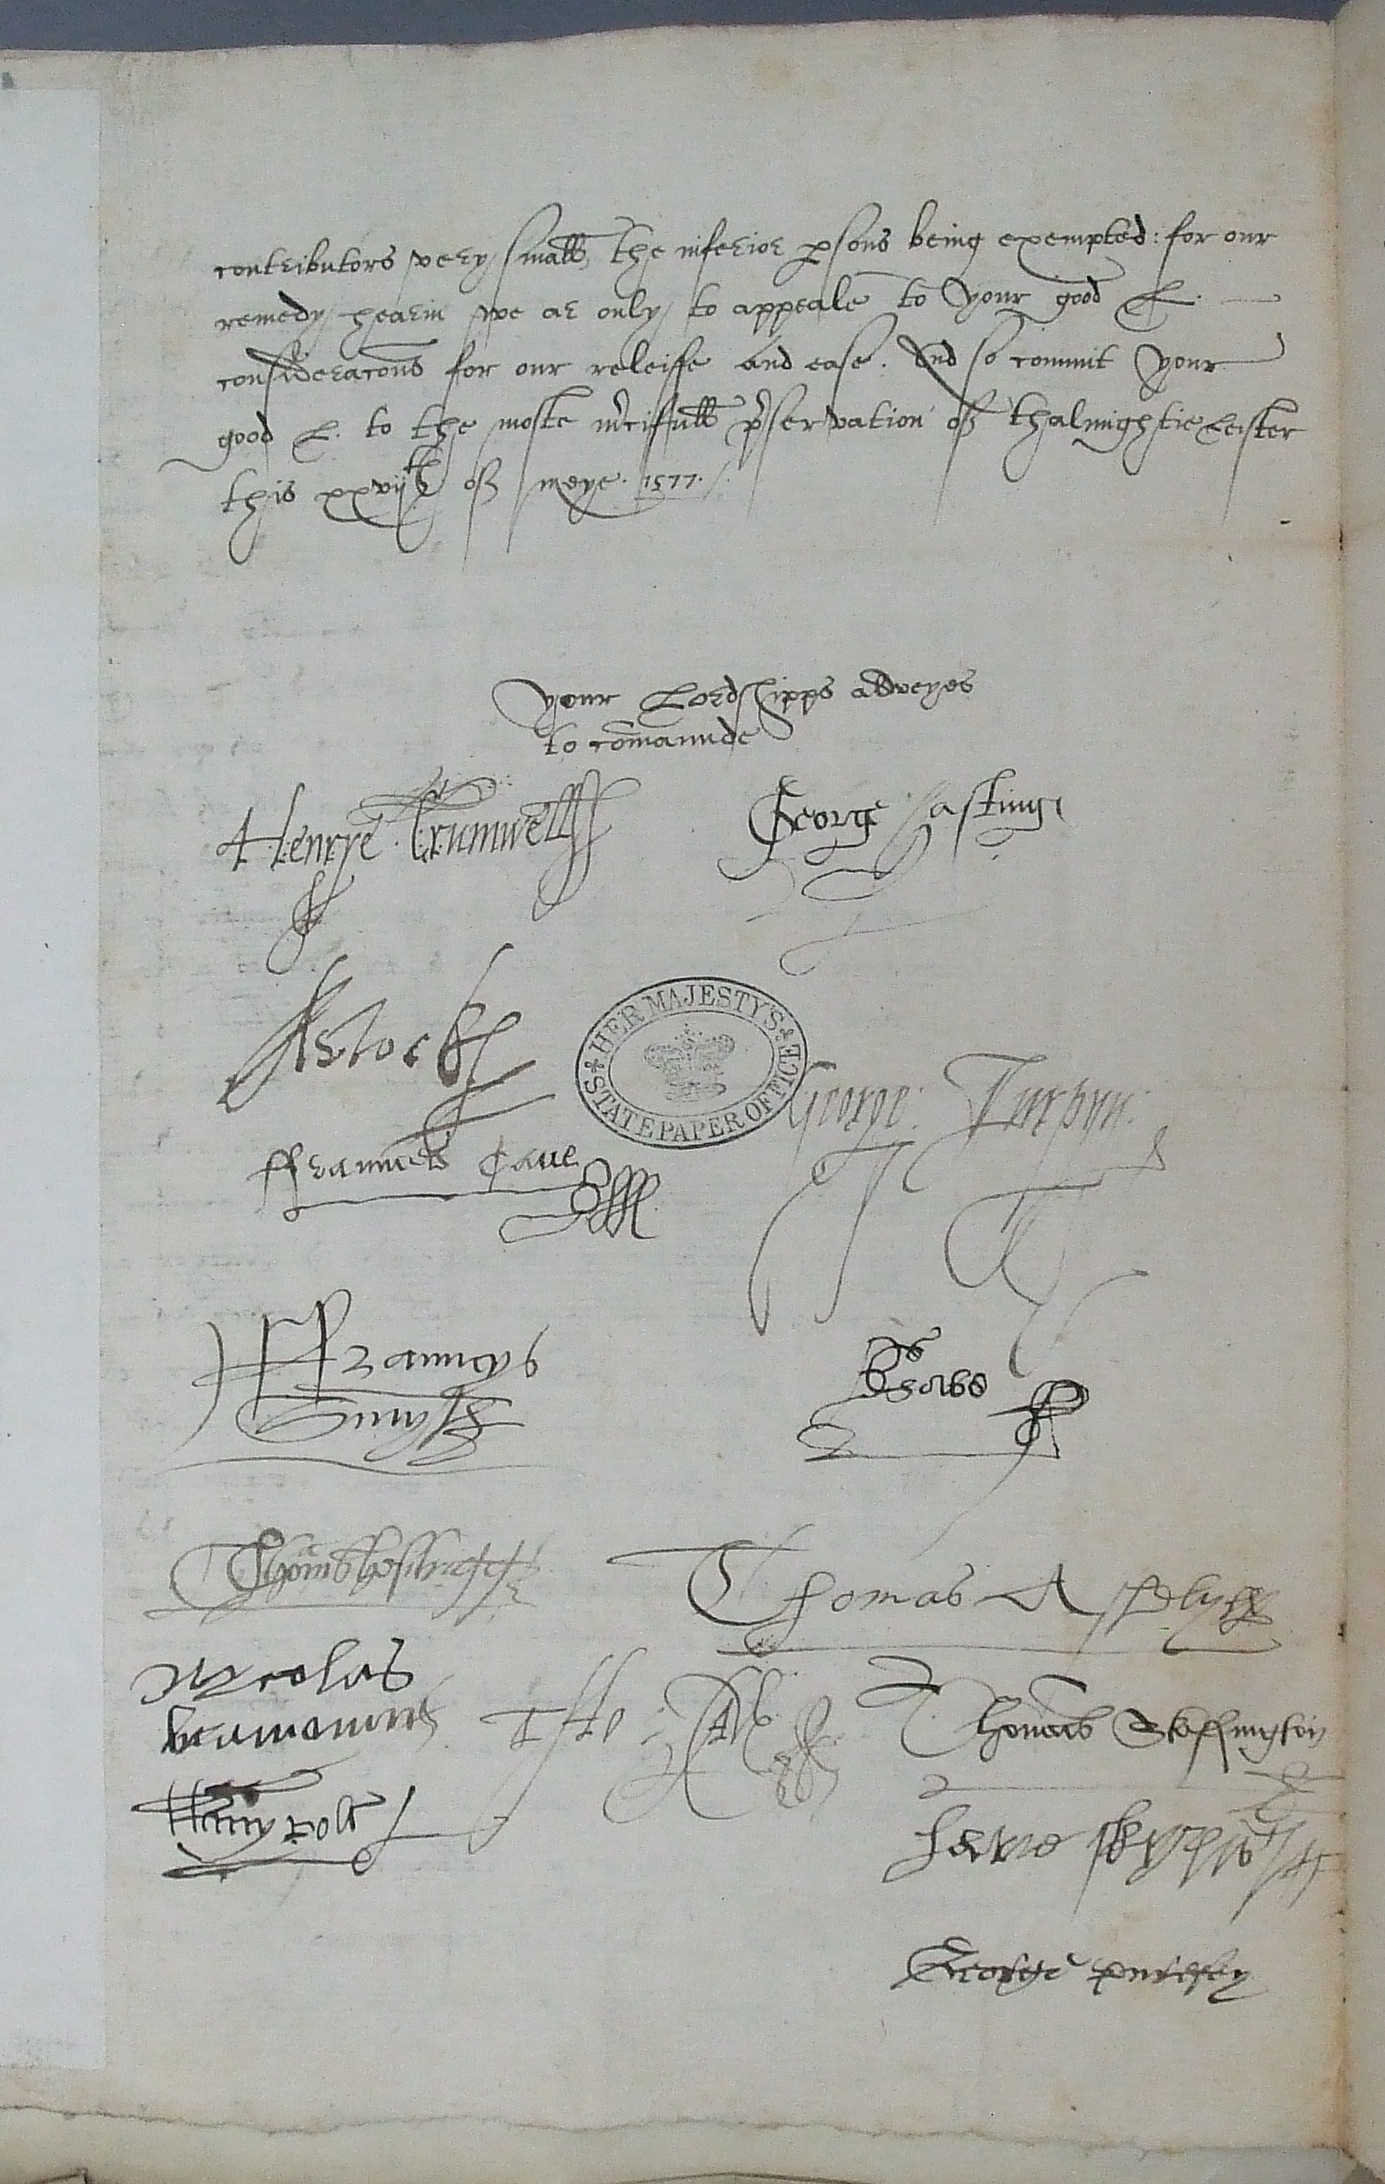 contributors very small, the inferior psons being exempted: for our
remedy hearin we ar only to appeale to your good L.
consideracons for our releiffe and ease. And so commit your
good L. to the moste mcifull pservation of thalmightie Leister
this xxvijth of meye. 1577.
your Lordshipps allweyes
to comaunde
Henrye Crumwell George Hastings
HER MAJESTY'S STATE PAPER OFFICE
George Turpyn
ffrauncis Cave
ffrauncys
Smyth
Thomas Thomas Asheby
Nicolas
beaumount Thomas Skeffington
George purefey